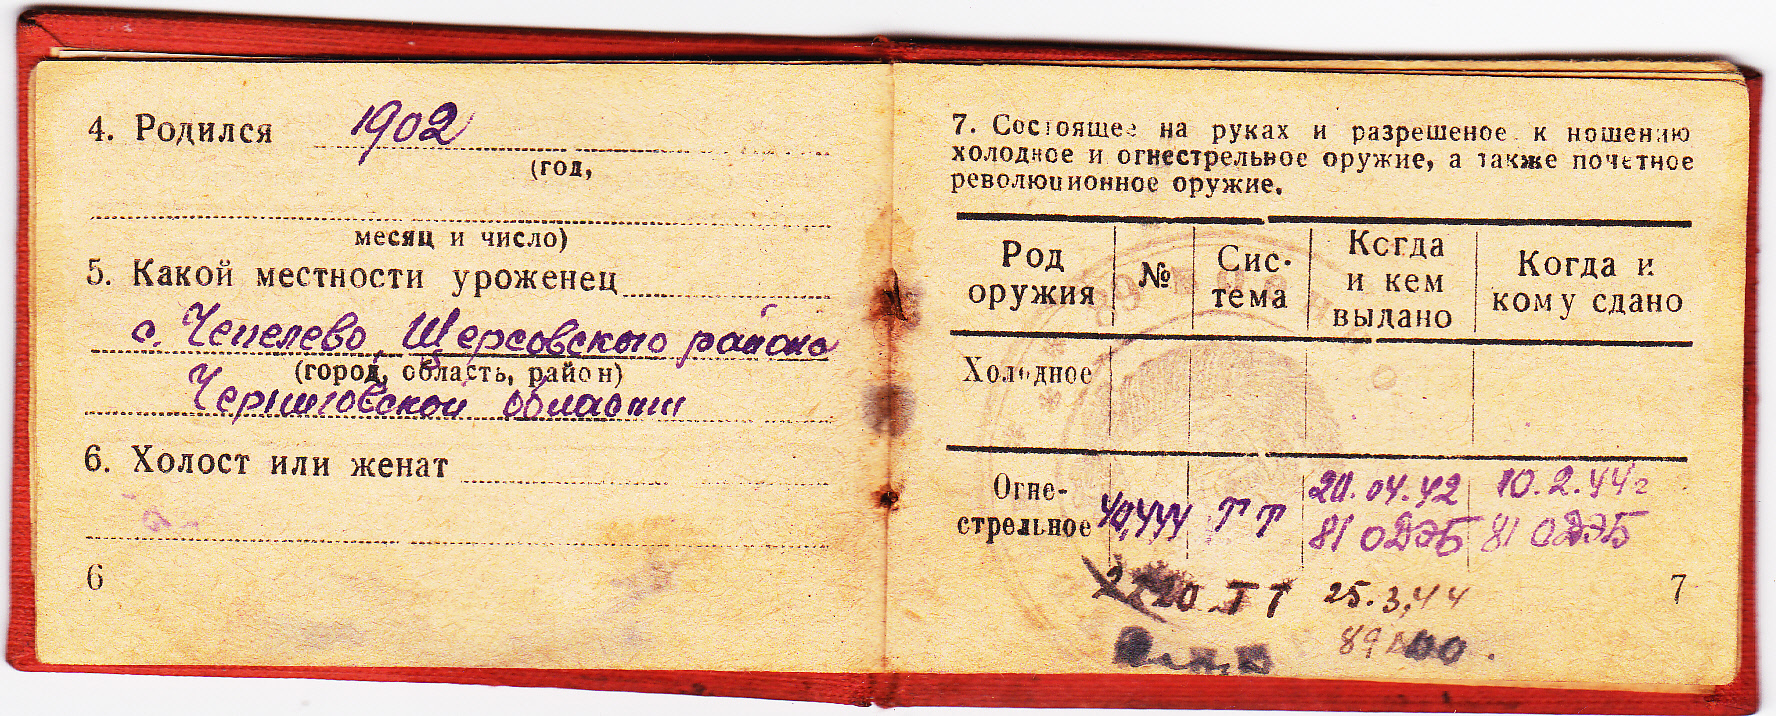 4. Родился 1902
(год,
месяц и число)
5. Какой местности уроженец
с. Чепелево Щорсовского района
(город, область, район)
Черниговской области
6. Холост или женат
6
7. Состоящее на руках и разрешеное к ношению
холодное и огнестрельное оружие, а также почетное
революционное оружие.
Род оружия № Система Когда и кем выдано Когда и кому сдано
Холодное
Огнестрельное ТТ 20.04.42 10.2.44г
81 ОДЭБ 81 ОДЭБ
ТТ 25.3.44
7